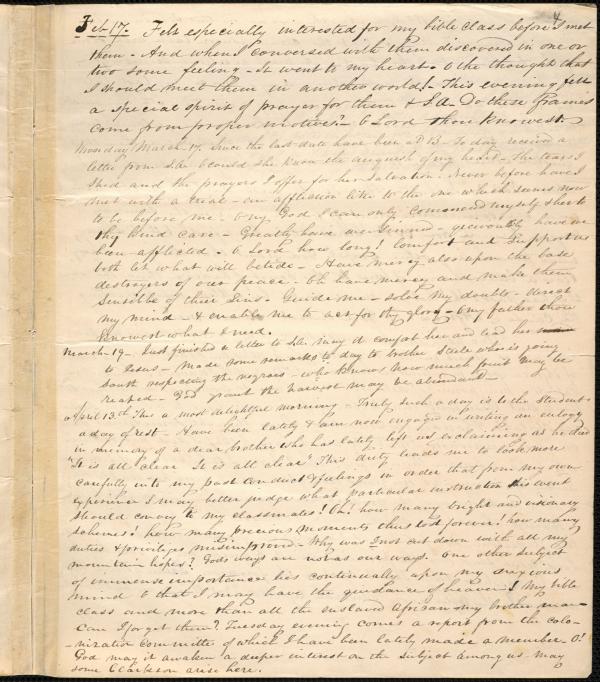 Feb 17. Felt especially interested for my bible class before I met
them - And when I conversed with them discovered in one or
two some feeling - It went to my heart - O the thought that
I should meet them in another world! - This evening felt
a special spirit of prayer for them & S.A. Do these frames
come from proper motives? - O Lord thou knowest.
Monday March 17. Since the last date have been at B - To day received a
letter from S.A. O could she know the anguish of my heart - The tears I
shed and the prayers I offer for her salvation. Never before have I
met with a trial - an affliction like to the one which seems now
to be before me. O my God I can only commend myself & her to
thy kind care - Greatly have we sinned - grievously have we
been afflicted - O Lord how long! Comfort and support us
both let what will betide - Have mercy also upon the base
destroyers of our peace - Oh have mercy and make them
sensible of their sins - Guide me - solve my doubts - direct
my mind - & enable me to act for thy glory - O my father thou
knowest what I need.
March 19 - Just finished a letter to S.A. may it comfort her and lead her
to Jesus - Made some remarks to day to brother Steele who is going
South respecting the negroes - who knows how much fruit may be
reaped - God grant the harvest may be abundant -
April 13th This a most delightful morning - Truly such a day is to the student
a day of rest - Have been lately & am now engaged in writing an eulogy
in memory of a dear brother who has lately left us, exclaiming as he died
"It is all clear It is all clear" This duty leads me to look more
carefully into my past conduct & feelings in order that from my own
experience I may better judge what particular instruction this event
should convey to my classmates! Oh! how many bright and visionary
schemes! how many precious moments thus lost forever! how many
duties & privileges misimproved - Why was I not cut down with all my
mountain hopes? Gods ways are not as our ways. One other subject
of immense importance lies continually upon my anxious
mind O that I may have the guidance of heaven! My bible
class and more than all the enslaved African - my brother man -
can I forget them? Tuesday evening comes a report from the colo-
-nization committee of which I have been lately made a member - O!
God may it awaken a deeper interest on the subject among us may
some Clarkson arise here.